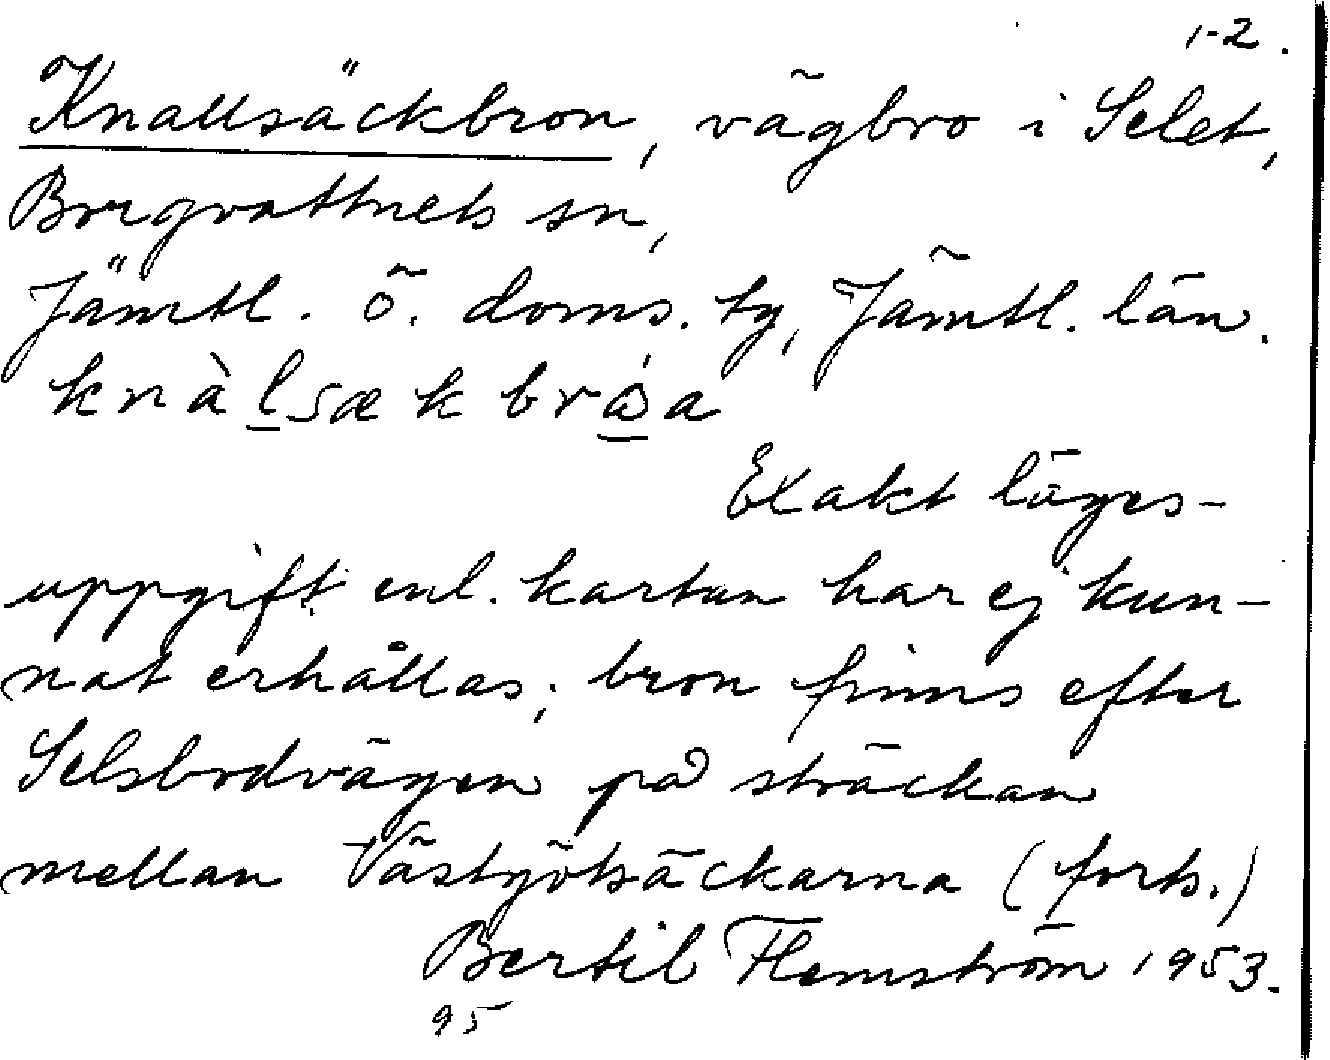 1-2.
Knallsäckbron, vägbro i Selet,
Borgvattnets sn,
Jämtl. ö. doms. tg, Jämtl. län.
knàlsæk bråa
Exakt läges-
uppgift enl. kartan har ej kun-
nat erhållas; bron finns efter
Selsbodvägen på sträckan
mellan Västgötbäckarna (forts.)
Bertil Flemström 1953.
95